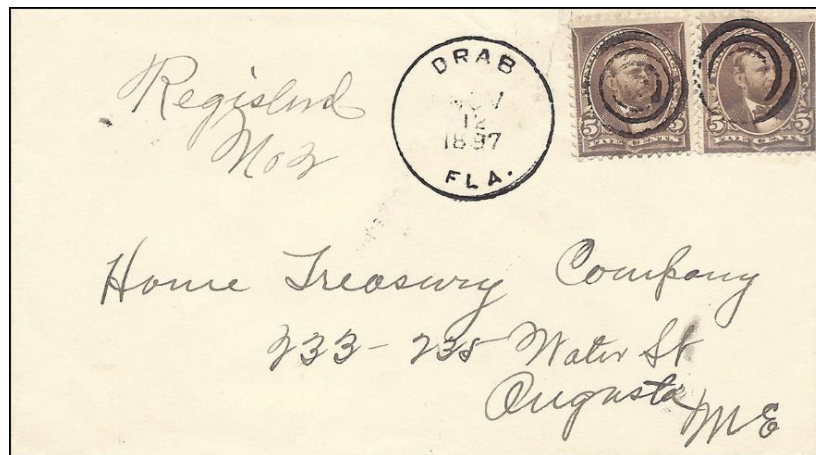 Registerd
No 2
DRAB
NOV
12
1897
FLA.
5 5
FIVE CENTS
5 5
FIVE CENTS
Home Treasury Company
233-235 Water St
Augusta
ME